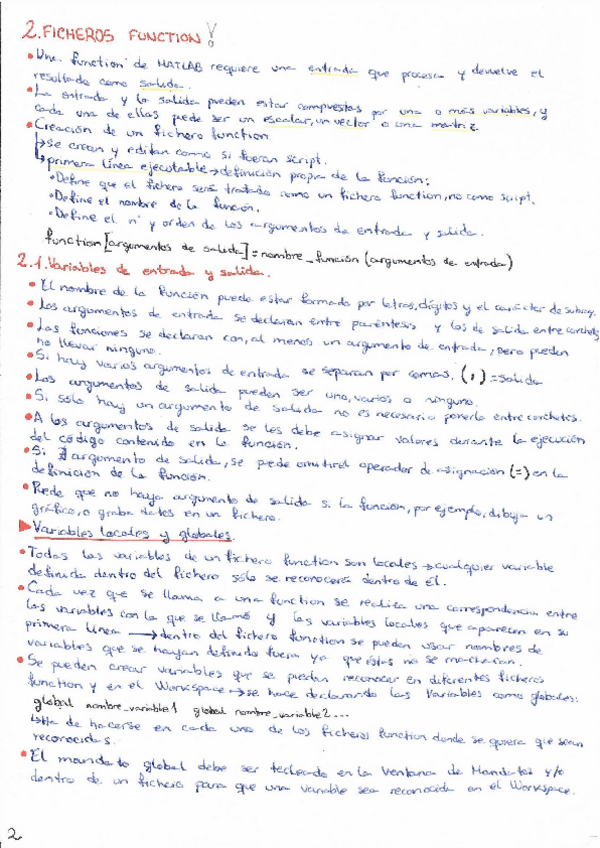 2. FICHEROS FUNCTION!
• Una function de MATLAB requiere una entrada que procesa y devuelve el
resultado como salida.
• La entrada y la salida pueden estar compuestas por una o más variables, y
cada una de ellas puede ser un escalar, un vector o una matriz.
• Creación de un fichero function.
↳ se crean y editan como si fueran script.
↳ primera línea ejecutable → definición propia de la función:
• Define que el fichero será tratado como un fichero function, no como script.
• Define el nombre de la función.
• Define el nº y orden de los argumentos de entrada y salida.
function [argumentos de salida] = nombre_función (argumentos de entrada)
2.1. Variables de entrada y salida.
• El nombre de la función puede estar formado por letras, dígitos y el carácter de subray.
• Los argumentos de entrada se declaran entre paréntesis y los de salida entre corchetes
• Las funciones se declaran con, al menos un argumento de entrada, pero pueden
no llevar ninguno.
• Si hay varios argumentos de entrada se separan por comas. (,) = salida
• Los argumentos de salida pueden ser uno, varios o ninguno.
• Si sólo hay un argumento de salida no es necesario ponerlo entre corchetes.
• A los argumentos de salida se les debe asignar valores durante la ejecución
del código contenido en la función.
• Si ∄ argumento de salida, se puede omitir el operador de asignación (=) en la
definición de la función.
• Puede que no haya argumento de salida si la función, por ejemplo, dibuja un
gráfico, o graba datos en un fichero.
▶ Variables locales y globales.
• Todas las variables de un fichero function son locales → cualquier variable
definida dentro del fichero sólo se reconocerá dentro de él.
• Cada vez que se llama a una function se realiza una correspondencia entre
las variables con la que se llamó y las variables locales que aparecen en su
primera línea → dentro del fichero function se pueden usar nombres de
variables que se hayan definido fuera ya que éstas no se machacan.
• Se pueden crear variables que se puedan reconocer en diferentes ficheros
function y en el Workspace → se hace declarando las variables como globales:
global nombre_variable1 global nombre_variable2...
↳ Ha de hacerse en cada uno de los ficheros function donde se quiera que sean
reconocidas.
• El mandato global debe ser tecleado en la Ventana de Mandatos y/o
dentro de un fichero para que una variable sea reconocida en el Workspace.
2